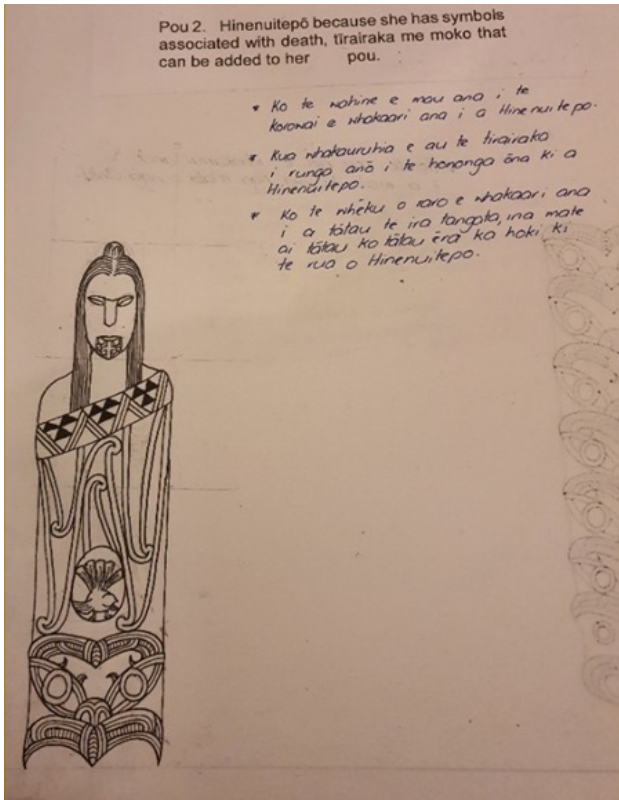 Pou 2. Hinenuitepō because she has symbols
associated with death, tīrairaka me moko that
can be added to her pou.
* Ko te wahine e mau ana i te
korowai e whakaari ana i a Hinenuitepo.
* Kua whakauruhia e au te tirairaka
i runga anō i te hononga ōna ki a
Hinenuitepo.
* Ko te wheku o raro e whakaari ana
i a tātau te ira tangata, ina mate
ai tātau ko tātau ērā ka hoki ki
te rua o Hinenuitepo.